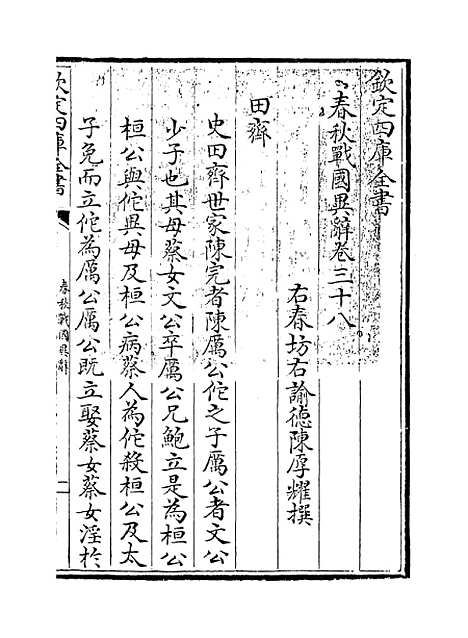 欽定四庫全書
春秋戰國異辭卷三十八
右春坊右諭德陳厚耀撰
田齊
史田齊世家陳完者陳厲公佗之子厲公者文公
少子也其母蔡女文公卒厲公兄鮑立是為桓公
桓公與佗異母及桓公病蔡人為佗殺桓公及太
子免而立佗為厲公厲公既立娶蔡女蔡女淫於
欽定四庫全書
春秋戰國異辭
一